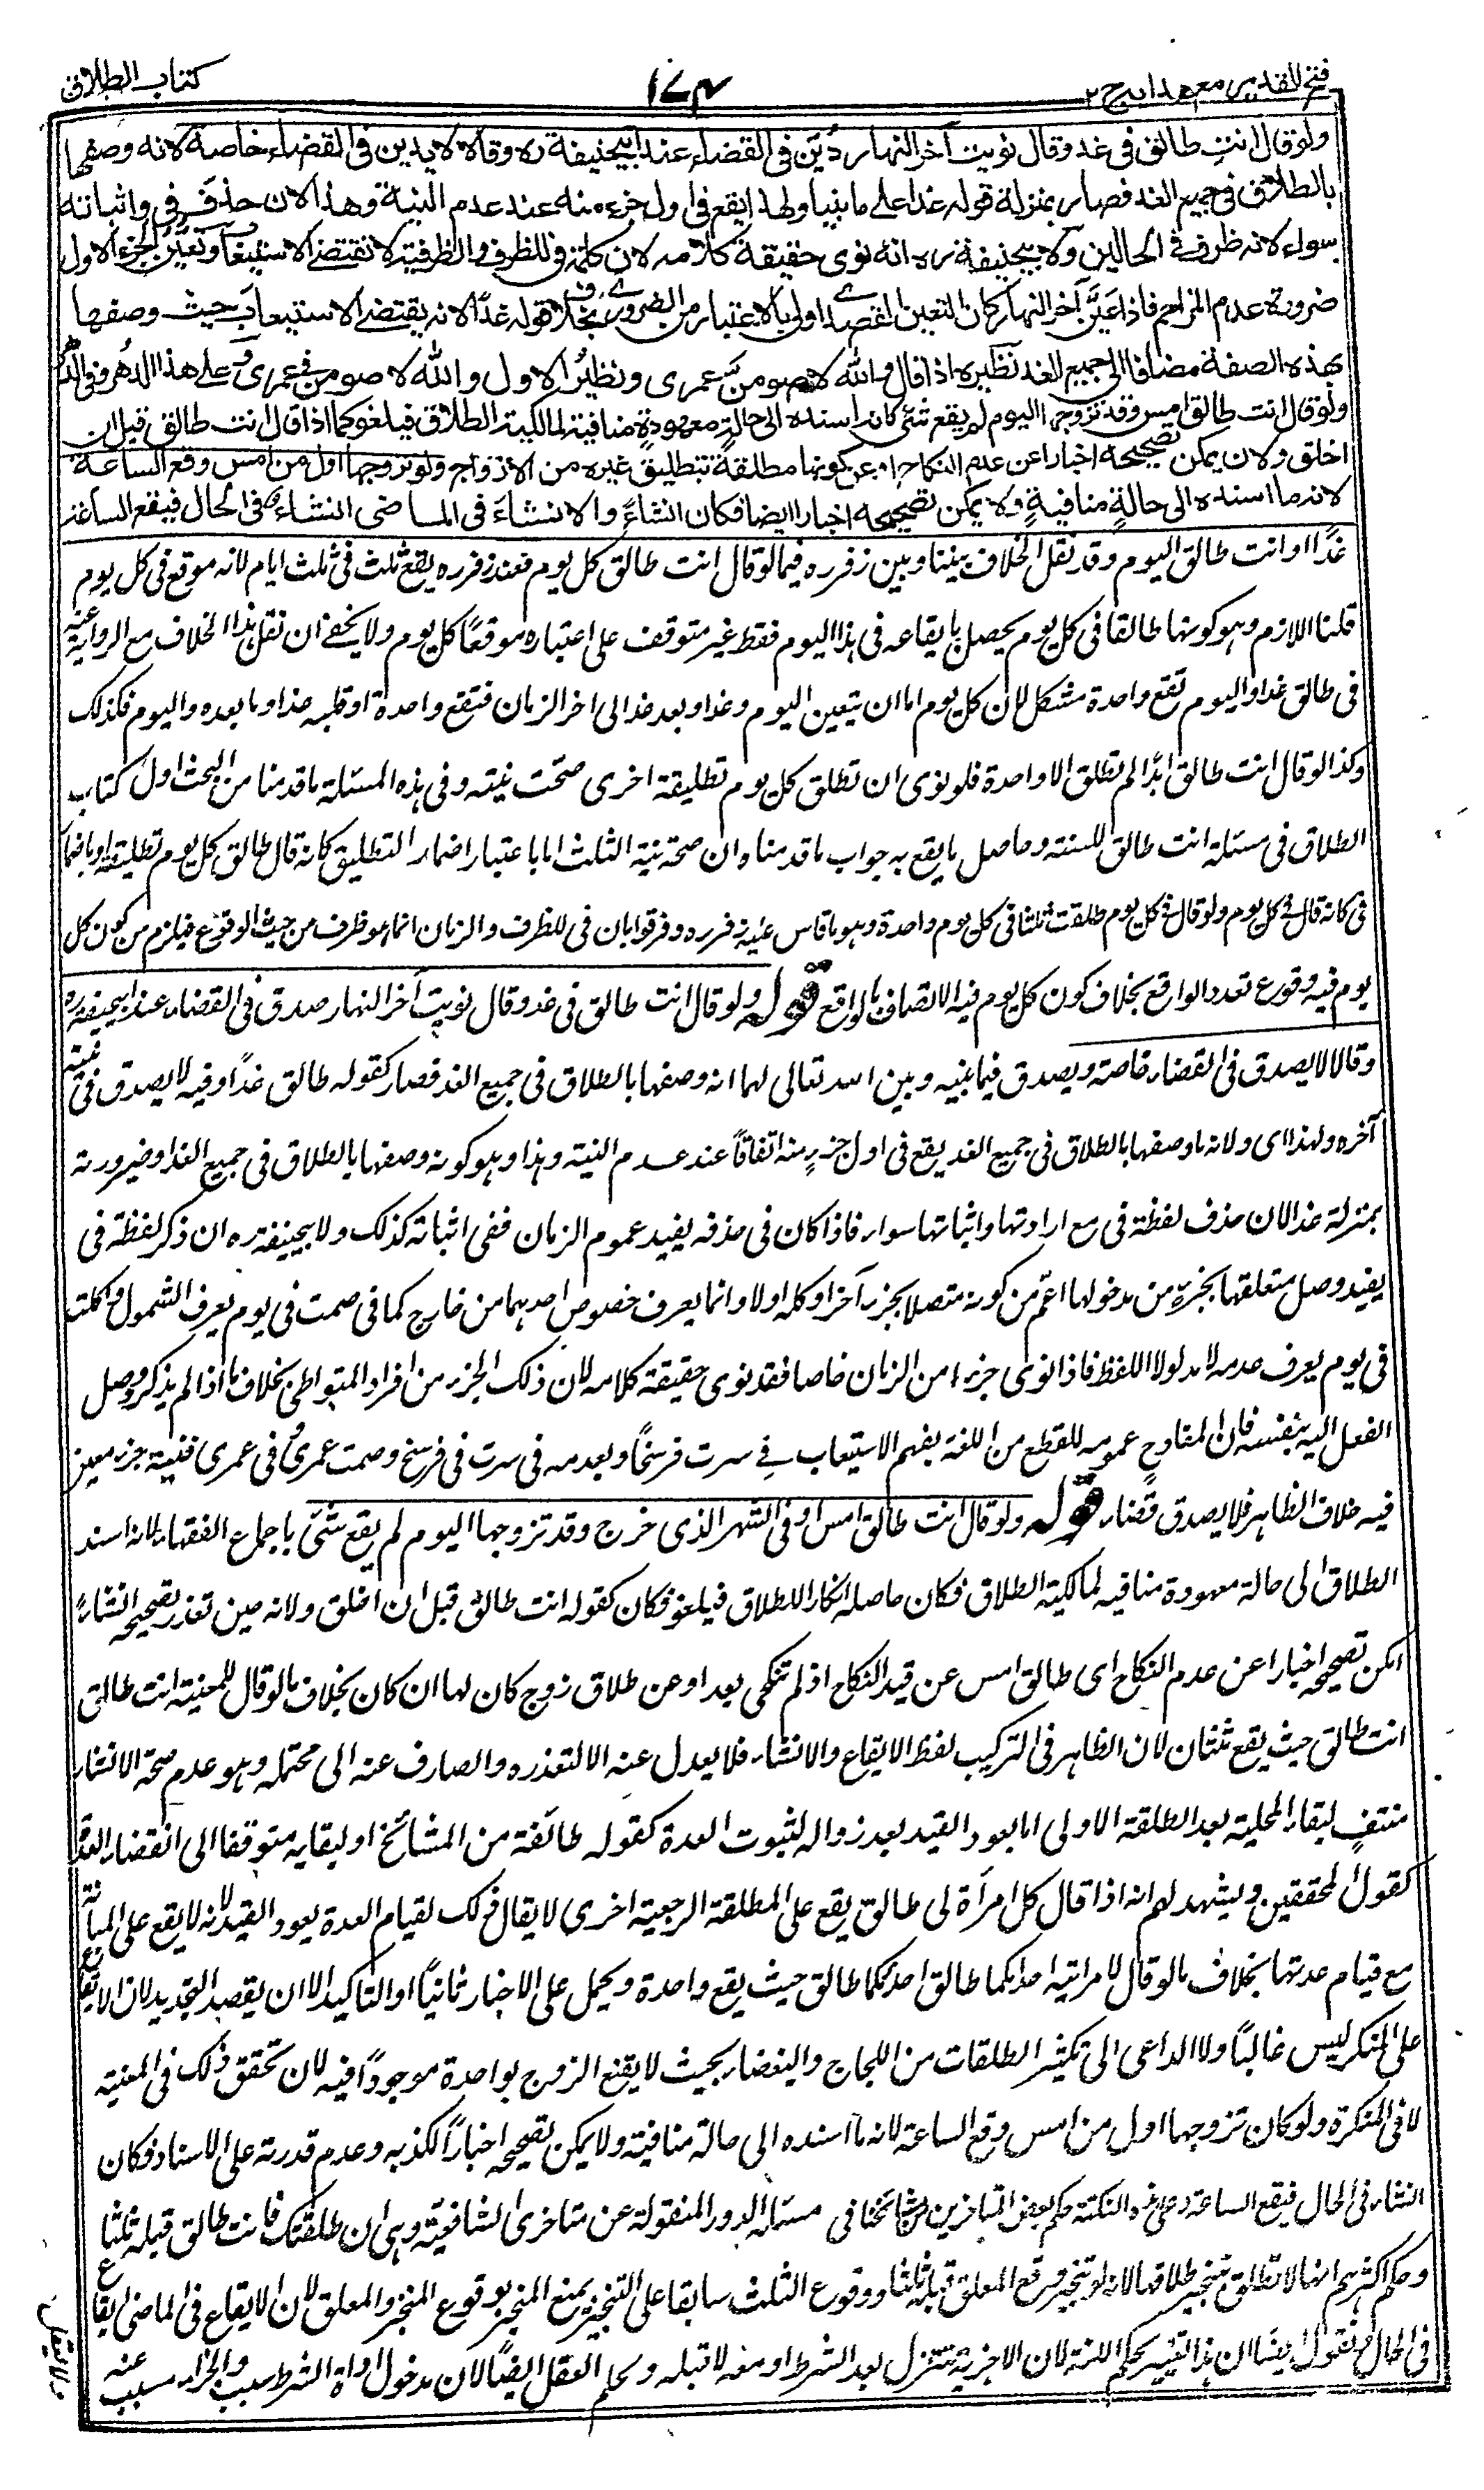 فتح القدير مع هدايه ج ٢
١٧٤
كتاب الطلاق
ولو قال انت طالق في غد وقال نويت آخر النهار دُيّن في القضاء عند ابيحنيفة ره وقالا لا يدين في القضاء خاصة لانه وصفها
بالطلاق في جميع الغد فصار بمنزلة قوله غدا على ما بينا ولهذا يقع في اول جزء منه عند عدم النية وهذا لان حذف في واثباته
سواء لانه ظرف في الحالين ولابيحنيفة ره انه نوى حقيقة كلامه لان كلمة في للظرف والظرفية لا تقتضي الاستيعاب وتعيُّن الجزء الاول
ضرورة عدم المزاحم فاذا عَيَّن آخر النهار كان التعيين القصدي اولى بالاعتبار من الضروري بخلاف قوله غدًا لانه يقتضي الاستيعاب حيث وصفها
بهذه الصفة مضافا الى جميع الغد نظيره اذا قال والله لاصومن عمري ونظير الاول والله لاصومن في عمري وعلى هذا الدهر وفي الدهر
ولو قال انت طالق امس وقد تزوجها اليوم لم يقع شئ لانه اسنده الى حالة معهودة منافية لمالكية الطلاق فيلغو كما اذا قال انت طالق قبل ان
اخلق ولانه يمكن تصحيحه اخبارا عن عدم النكاح او عن كونها مطلقة بتطليق غيره من الازواج ولو تزوجها اول من امس وقع الساعة
لانه ما اسنده الى حالةٍ منافيةٍ ولا يمكن تصحيحه اخبارا ايضا فكان انشاءً والانشاءُ في الماضي انشاء في الحال فيقع الساعة
غدًا او انت طالق اليوم وقد نقل الخلاف بيننا وبين زفر ره فيما لو قال انت طالق كل يوم فعند زفر ره يقع ثلث في ثلث ايام لانه موقع في كل يوم
قلنا اللازم وهو كونها طالقا في كل يوم يحصل بايقاعه في هذا اليوم فقط غير متوقف على اعتباره موقعًا كل يوم ولا يخفى ان نقل هذا الخلاف مع الرواية عنه
في طالق غدا واليوم تقع واحدة مشكل لان كل يوم اما ان يتعين اليوم وغدا وبعد غد الى اخر الزمان فتقع واحدة او قلبه غدا وما بعده واليوم فكذلك
وكذا لو قال انت طالق ابدًا لم تطلق الا واحدة فلو نوى ان تطلق كل يوم تطليقة اخرى صحّت نيته وفي هذه المسئلة ما قدمنا من البحث اول كتاب
الطلاق في مسئلة انت طالق للسنة وحاصل ما يقع به جواب ما قدمناه ان صحة نية الثلث اما باعتبار اضمار التطليق كانه قال طالق كل يوم تطليقة او باضمار
في كانه قال في كل يوم ولو قال في كل يوم طلقت ثلثا في كل يوم واحدة وهو ما قاس عليه زفر ره وفرقوا بان في للظرف والزمان انما هو ظرف من حيث الوقوع فيلزم من كون كل
يوم فيه وقوع تعدد الواقع بخلاف كون كل يوم فيه الاتصاف بالواقع قوله ولو قال انت طالق في غد وقال نويت آخر النهار صدق في القضاء عند ابيحنيفة ره
وقالا لا يصدق في القضاء خاصة ويصدق فيما بينه وبين الله تعالى لهما انه وصفها بالطلاق في جميع الغد فصار كقوله طالق غدًا وفيه لا يصدق في نية
آخره ولهذا اى ولانه ما وصفها بالطلاق في جميع الغد يقع في اول جزءٍ منه اتفاقًا عند عدم النية وهذا وهو كونه وصفها بالطلاق في جميع الغد وضرورته
بمنزلة غدا لان حذف لفظة في مع ارادتها واثباتها سواء فاذا كان في حذفه يفيد عموم الزمان ففي اثباته كذلك ولابيحنيفة ره ان ذكر لفظة في
يفيد وصل متعلقها بجزءٍ من مدخولها اعم من كونه متصلا بجزء آخر او كله اولا وانما يعرف خصوص احدهما من خارج كما في صمت في يوم يعرف الشمول واكلت
في يوم يعرف عدمه لا مدلولا للفظ فاذا نوى جزءا من الزمان خاصا فقد نوى حقيقة كلامه لان ذلك الجزء من افراد المتواطئ بخلاف ما اذا لم يذكر ووصل
الفعل اليه بنفسه فان المفاد ح عمومه للقطع من اللغة بفهم الاستيعاب في سرت فرسخًا وبعدمه في سرت في فرسخ وصمت عمري وفي عمري فنية جزء معين
فيه خلاف الظاهر فلا يصدق قضاء قوله ولو قال انت طالق امس او في الشهر الذي خرج وقد تزوجها اليوم لم يقع شئ باجماع الفقهاء لانه اسند
الطلاق الى حالة معهودة منافيه لمالكية الطلاق فكان حاصله انكارا للطلاق فيلغو فكان كقوله انت طالق قبل ان اخلق ولانه حين تعذر تصحيحه انشاءً
امكن تصحيحه اخبارا عن عدم النكاح اى طالق امس عن قيد النكاح اذ لم تنكحي بعد او عن طلاق زوج كان لها ان كان بخلاف ما لو قال للمعينة انت طالق
انت طالق حيث يقع ثنتان لان الظاهر في التركيب لفظ الايقاع والانشاء فلا يعدل عنه الا لتعذره والصارف عنه الى محتمله وهو عدم صحة الانشاء
منتفٍ لبقاء المحلية بعد الطلقة الاولى اما بعود القيد بعد زواله لثبوت العدة كقوله طائفة من المشائخ او لبقايه متوقفا الى انقضاء العدة
كقول المحققين ويشهد لهم انه اذا قال كل امرأة لي طالق يقع على المطلقة الرجعية اخرى لا يقال ذلك لقيام العدة يعود القيد لانه لا يقع على المبانة
مع قيام عدتها بخلاف ما لو قال لامراتيه احداكما طالق احداكما طالق حيث يقع واحدة ويحمل على الاخبار ثانيًا او التاكيد الا ان يقصد التجديد لان الايقاع
على المنكر ليس غالبًا ولا الداعي الى تكثير الطلقات من اللجاج والبغضاء بحيث لا يقنع الزوج بواحدة موجودًا فيه لان تحقق ذلك في المعنية
لا في المنكرة ولو كان تزوجها اول من امس وقع الساعة لانه ما اسنده الى حالة منافية ولا يمكن تصحيحه اخبارًا لكذبه وعدم قدرته على الاسناد فكان
انشاء في الحال فيقع الساعة وعلى هذه النكتة حكم بعض المتاخرين من مشائخنا في مسئلة الدور المنقولة عن متاخرى الشافعية وهى ان طلقتك فانت طالق قبله ثلثا
وحكم اكثرهم انها لا تطلق بتنجيز طلاقها لانه لو تنجز وقع المعلق قبله ثلثا ووقوع الثلث سابقا على التنجيز يمنع المنجز بوقوع المنجز والمعلق لان الايقاع في الماضى ايقاع
في الحال ونقول ايضا ان هذا تغيير لحكم اللغة لان الاجزية تتنزل بعد الشرط او معه لا قبله ولحكم العقل ايضًا لان مدخول اداة الشرط سبب والجزاء مسبب عنه